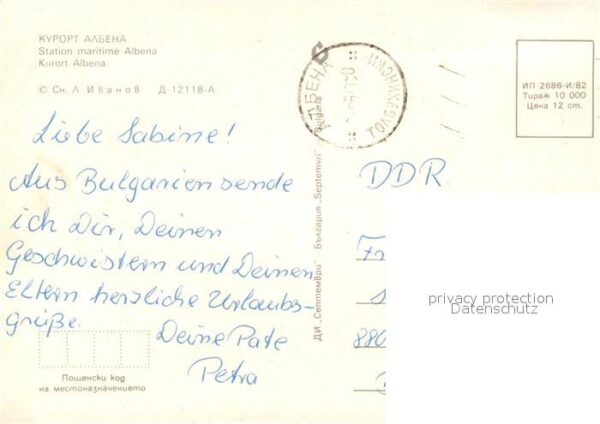 КУРОРТ АЛБЕНА
Station maritime Albena
Kurort Albena
© Сн. Л. Иванов Д-12118-А
Liebe Sabine!
Aus Bulgarien sende
ich Dir, Deinen
Geschwistern und Deinen
Eltern herzliche Urlaubs-
grüße.
Deine Pate
Petra
Пощенски код
на местоназначението
ДИ „Септември" България „Septemvri" Bulgaria
АЛБЕНА
ТОЛБУХИН
ИП 2686-И/82
Тираж 10 000
Цена 12 ст.
DDR
Fr
880
privacy protection
Datenschutz